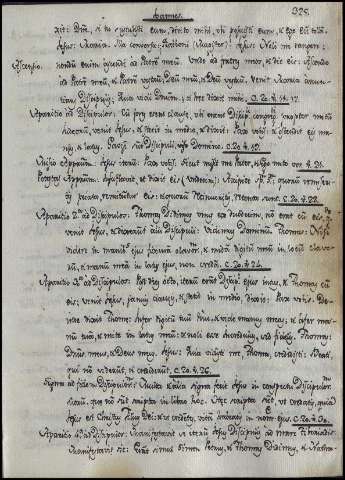 Joannes.
325.
ei: Dñe, si tu sustulisti eum, dicito mihi, ubi posuisti eum, & ego eū tollā.
Jesus: Maria. Illa conversa: Rabboni (Magister). Jesus: Noli me tangere:
Ascensio. nondū enim ascendi ad Patrē meū. Vade ad fratres meos, & dic eis: Ascendo
ad Patrē meū, & Patrē vestrū, Deū meū, & Deū vestrū. Venit Maria annun-
cians Discipulis: Quia vidi Dominū, & hæc dixit mihi. C. 20. v. 14. 17.
Apparitio ad Discipulos. Cū fores essent clausæ, ubi erant Discip. congregati propter metū
Judæorū, venit Jesus, & stetit in medio, & dixit: Pax vobis. & ostendit eis ma-
nus, & latus. Gavisi sunt Discipuli, viso Domino. C. 20. v. 19.
Missio Appstorū. Jesus iterū: Pax vobis. Sicut misit me Pater, & ego mitto vos. v. 21.
Potestas Appstorū. Insufflavit, & dixit eis: Accipite Sp. S.: quorū remise-
ritis peccata, remittuntur eis: & quorū retinueritis, retenta sunt. C. 20. v. 22.
Apparitio 2ª ad Discipulos. Thomas Didimus unus ex duodecim, nō erat cū eis
venit Jesus, & dixerunt alii Discipuli: Vidimus Dominū. Thomas: Nisi
videro in manibus ejus fixurā clavorū, & mittā digitū meū in locū clavo-
rū, & manū meā in latus ejus, non credā. C. 20. v. 24.
Apparitio 3ª ad Discipulos. Post dies octo, iterū erāt Discip. ejus intus, & Thomas cū
eis: venit Jesus, januis clausis, & stetit in medio, dixit: Pax vobis. De-
inde dixit Thomæ: Infer digitū tuū huc, & vide manus meas, & infer ma-
nū tuā, & mitte in latus meū: & noli esse incredulus, sed fidelis. Thomas:
Dñus meus, & Deus meus. Jesus: Quia vidisti me, Thoma, credidisti: Beati,
qui nō viderūt, & crediderūt. C. 20. v. 26.
Signa ad fidem Discipulorū. Multa & alia signa fecit Jesus in conspectu Discipulorū
suorū, quæ nō sūt scripta in libro hoc. Hæc scripta sūt, ut credatis, quia
Jesus est Christus Filius Dei: & ut credētes, vitā habeatis in nomine ejus. C. 20. v. 30.
Apparitio ad Discipulos. Manifestavit se iterū Jesus Discipulis ad mare Tiberiadis.
Manifestavit sic: Erāt simul Simon Petrus, & Thomas Didimus, & Natha-